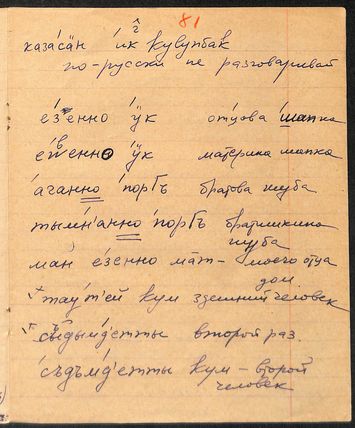 81
каза́са̄н и́к кувупбак
по-русски не разговаривай
е́зенно ӱ́к отцова шапка
е́венно ӱ́к материна шапка
а́чанно порҐъ братова шуба
тымн'анно порҐъ братишкина
шуба
ман е́зенно ма̄т – моего отца
дом.
тау́т'ей кум здешний человек
съ́дымд'етты второй раз.
съ́дъмд'етты кум – второй
человек